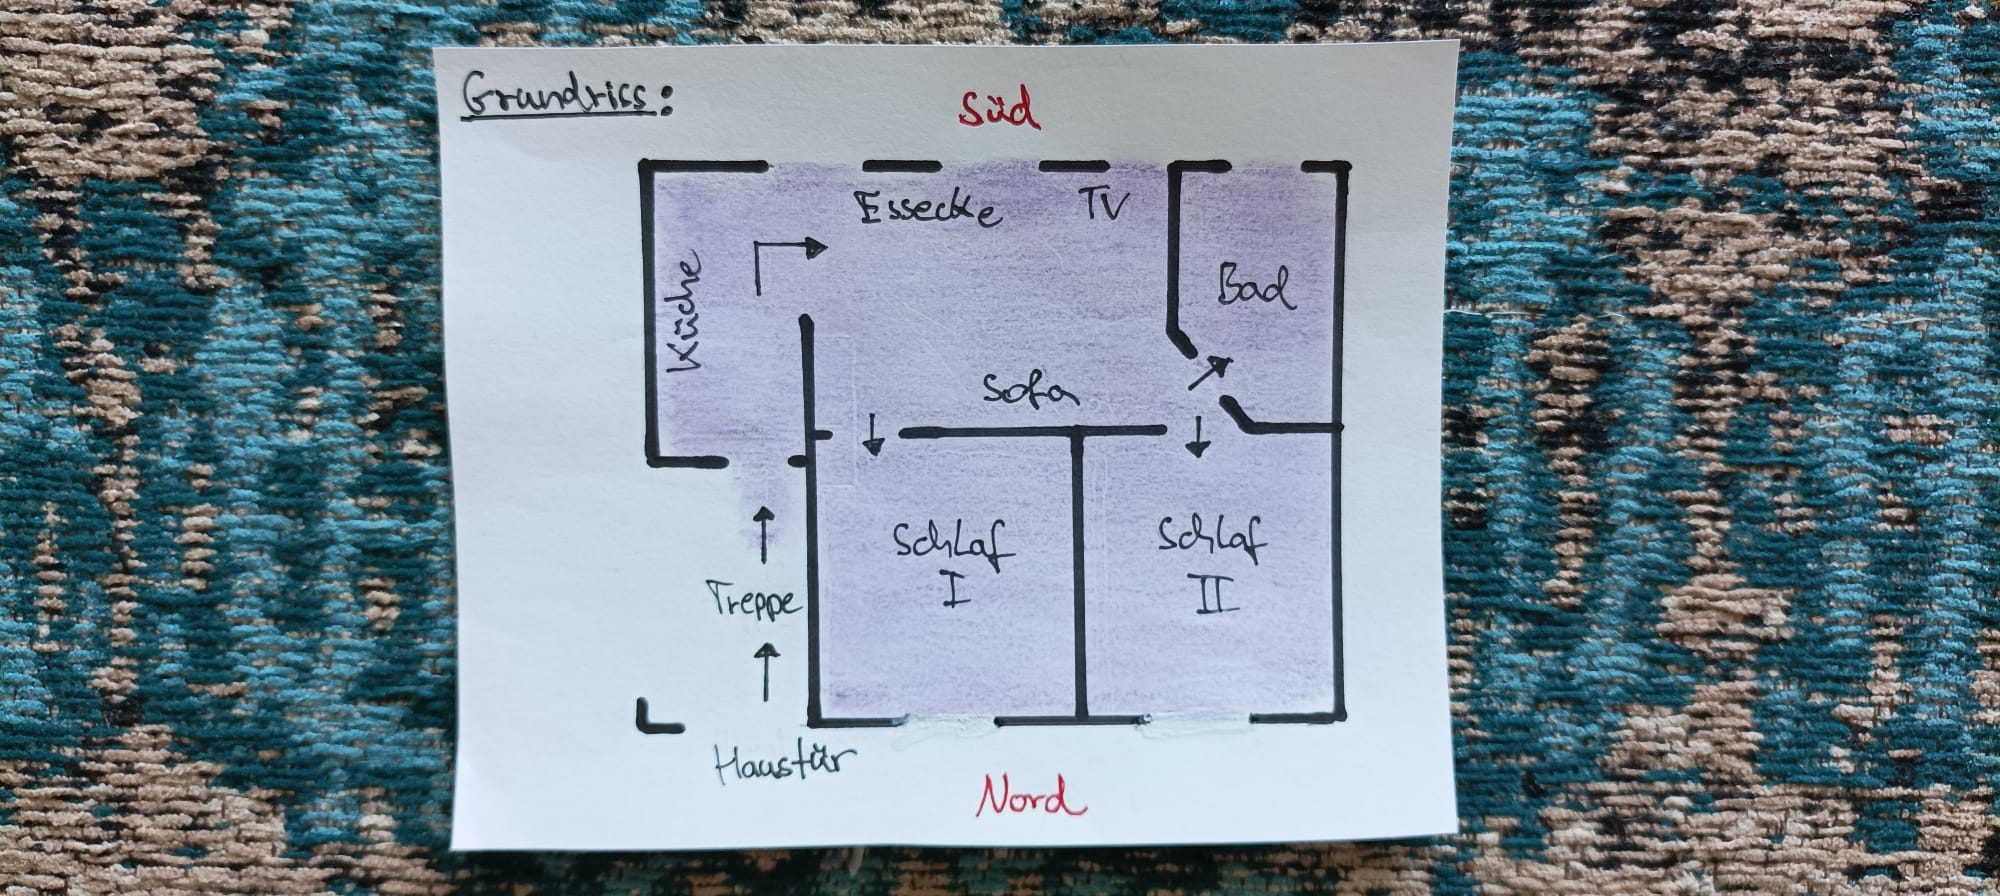 Grundriss:
Süd
Essecke
TV
Küche
Bad
Sofa
Schlaf
I
Schlaf
II
Treppe
Haustür
Nord